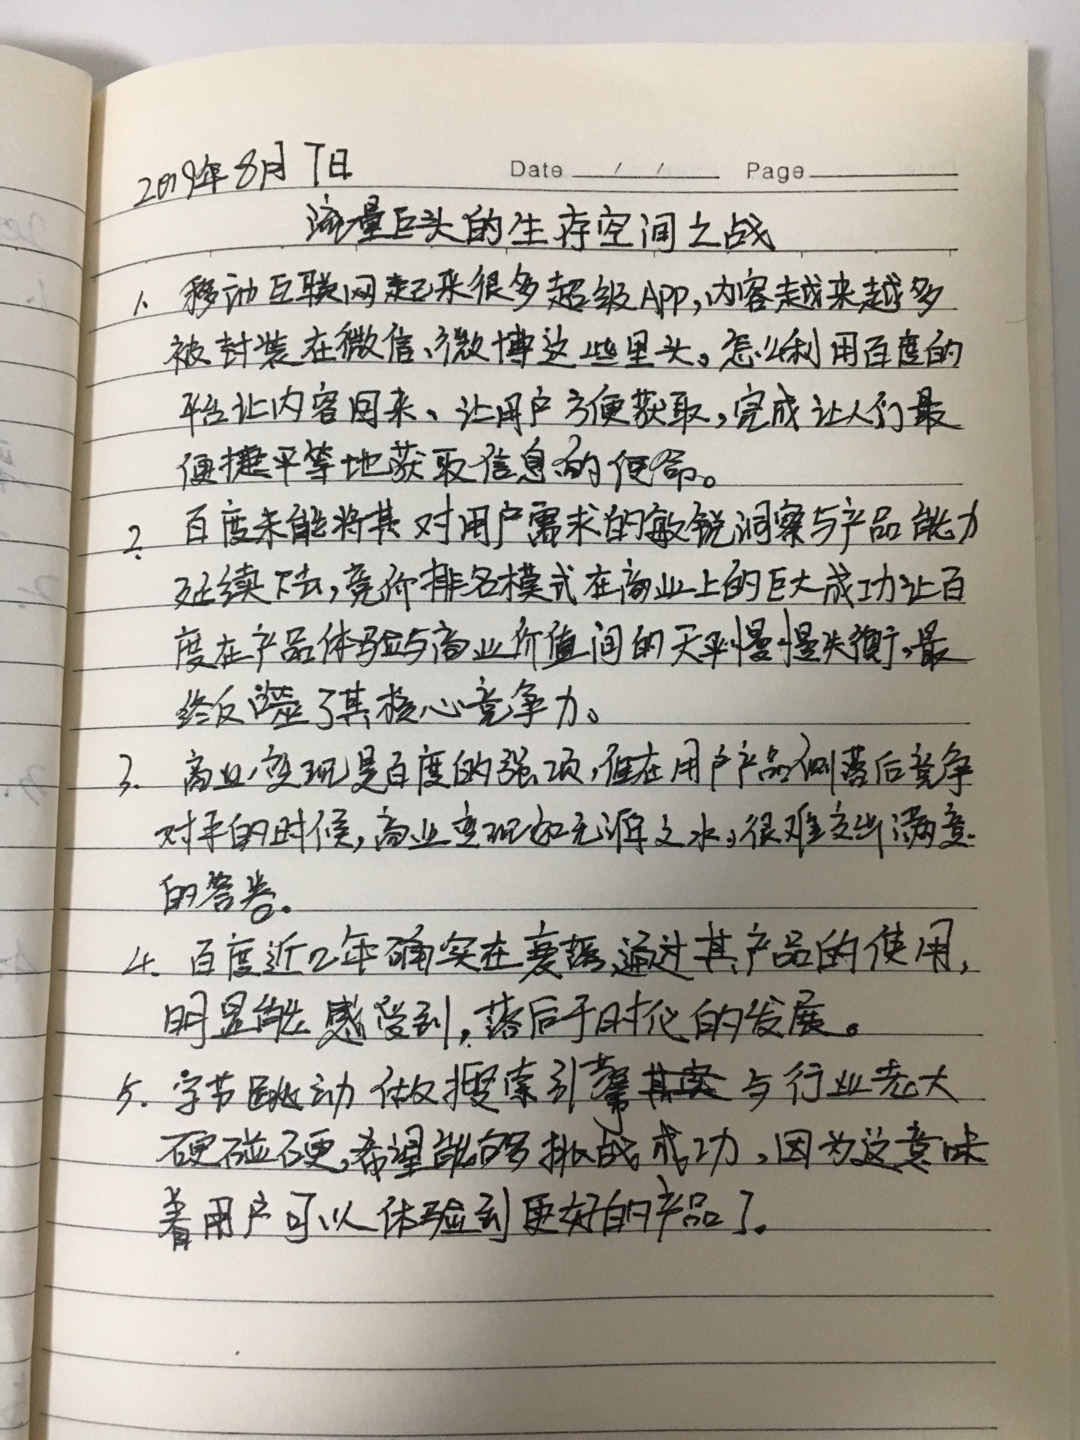 2019年8月7日
Date / / Page
流量巨头的生存空间之战
1. 移动互联网起来很多超级APP,内容越来越多
被封装在微信、微博这些里头。怎么利用百度的
平台让内容回来、让用户方便获取,完成让人们最
便捷平等地获取信息的使命。
2. 百度未能将其对用户需求的敏锐洞察与产品能力
延续下去,竞价排名模式在商业上的巨大成功让百
度在产品体验与商业价值间的天平慢慢失衡,最
终反噬了其核心竞争力。
3. 商业变现是百度的强项,但在用户产品侧落后竞争
对手的时候,商业变现如无源之水,很难交出满意
的答卷。
4. 百度近2年确实在衰落,通过其产品的使用,
明显能感受到,落后于时代的发展。
5. 字节跳动做搜索引擎其实与行业老大
硬碰硬,希望能够挑战成功,因为这意味
着用户可以体验到更好的产品了。